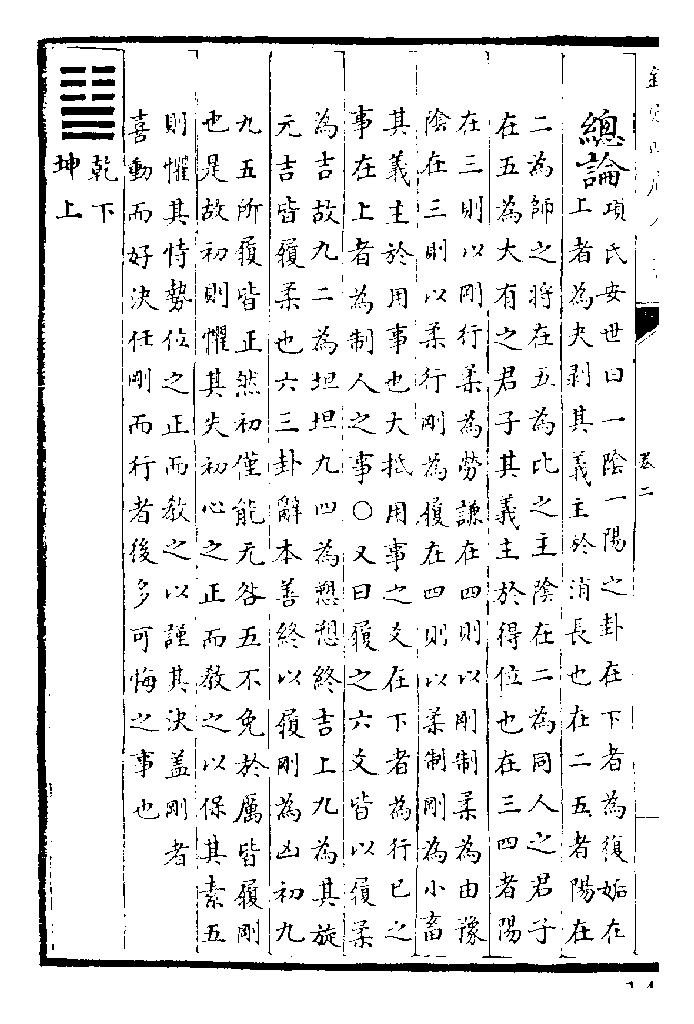 卷二
總論
項氏安世曰一陰一陽之卦在下者為復姤在
上者為夬剥其義主於消長也在二五者陽在
二為師之将在五為比之主陰在二為同人之君子
在五為大有之君子其義主於得位也在三四者陽
在三則以剛行柔為勞謙在四則以剛制柔為由豫
陰在三則以柔行剛為履在四則以柔制剛為小畜
其義主於用事也大抵用事之爻在下者為行已之
事在上者為制人之事○又曰履之六爻皆以履柔
為吉故九二為坦坦九四為愬愬終吉上九為其旋
元吉皆履柔也六三卦辭本善終以履剛為凶初九
九五所履皆正然初僅能无咎五不免於厲皆履剛
也是故初則懼其失初心之正而教之以保其素五
則懼其恃勢位之正而教之以謹其決盖剛者
喜動而好決任剛而行者後多可悔之事也
乾下
坤上